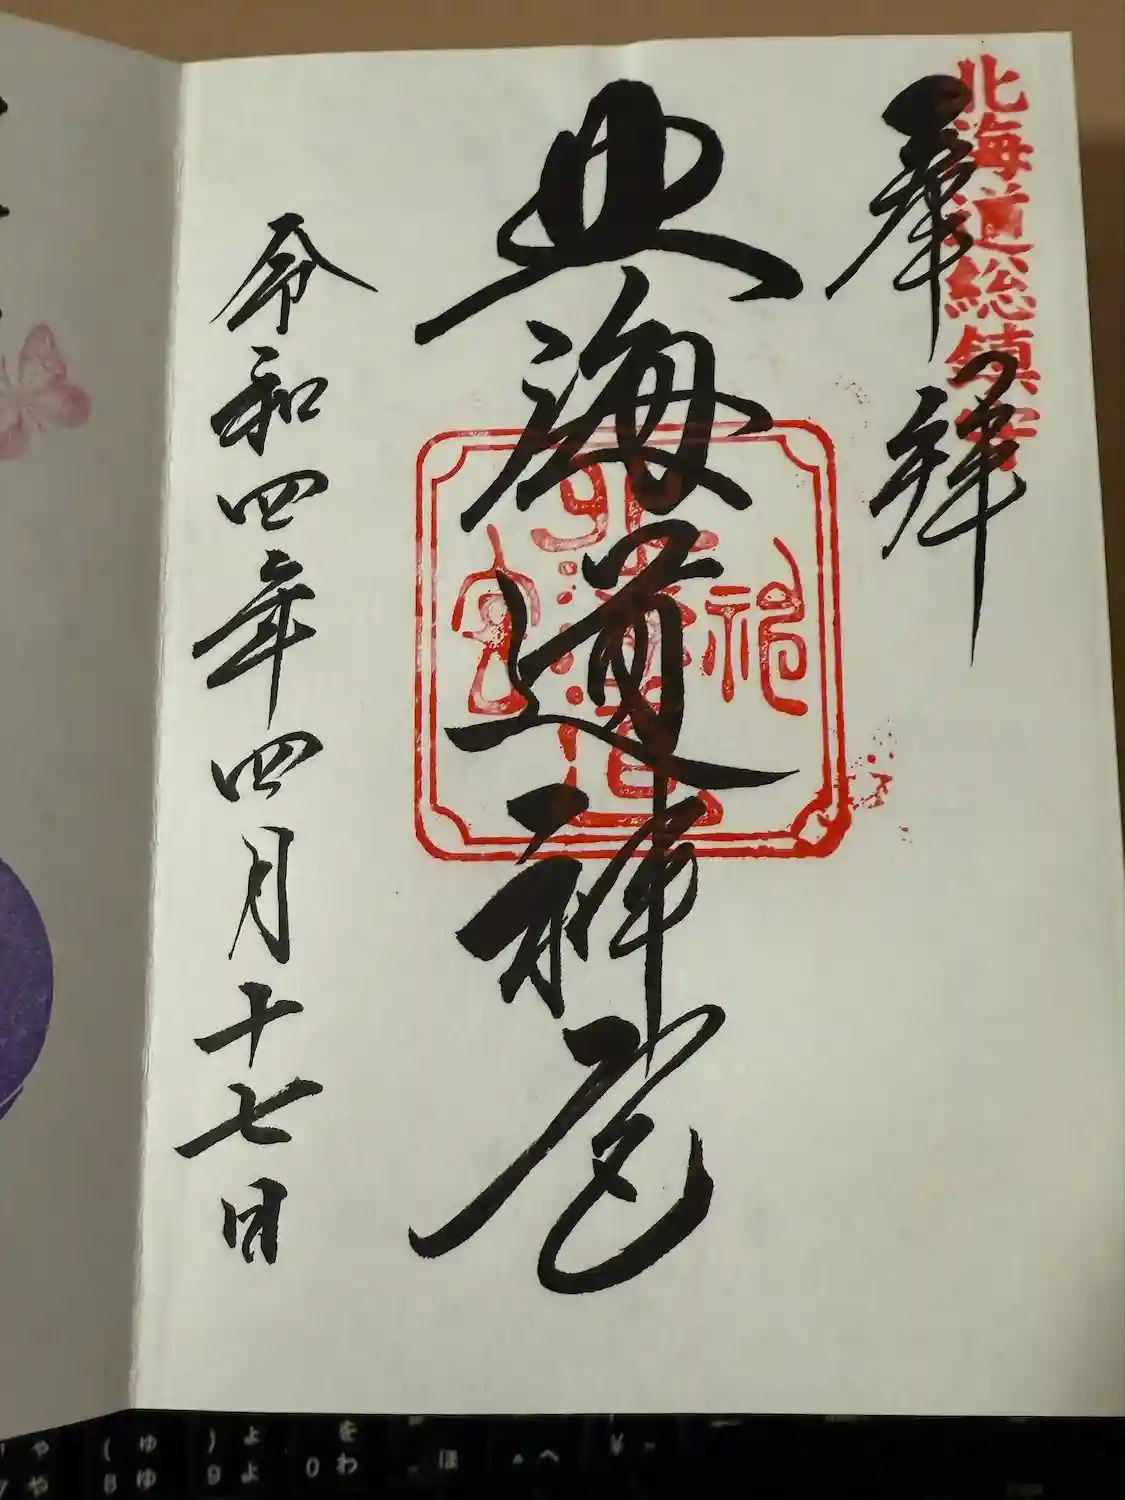 北海道総鎮守
奉拝
北海道神宮
北海道神宮
令和四年四月十七日
' ゃ
7 や
( ゅ
8 ゆ
) ょ
9 よ
を
0 わ
- ほ
^ へ
¥ ー